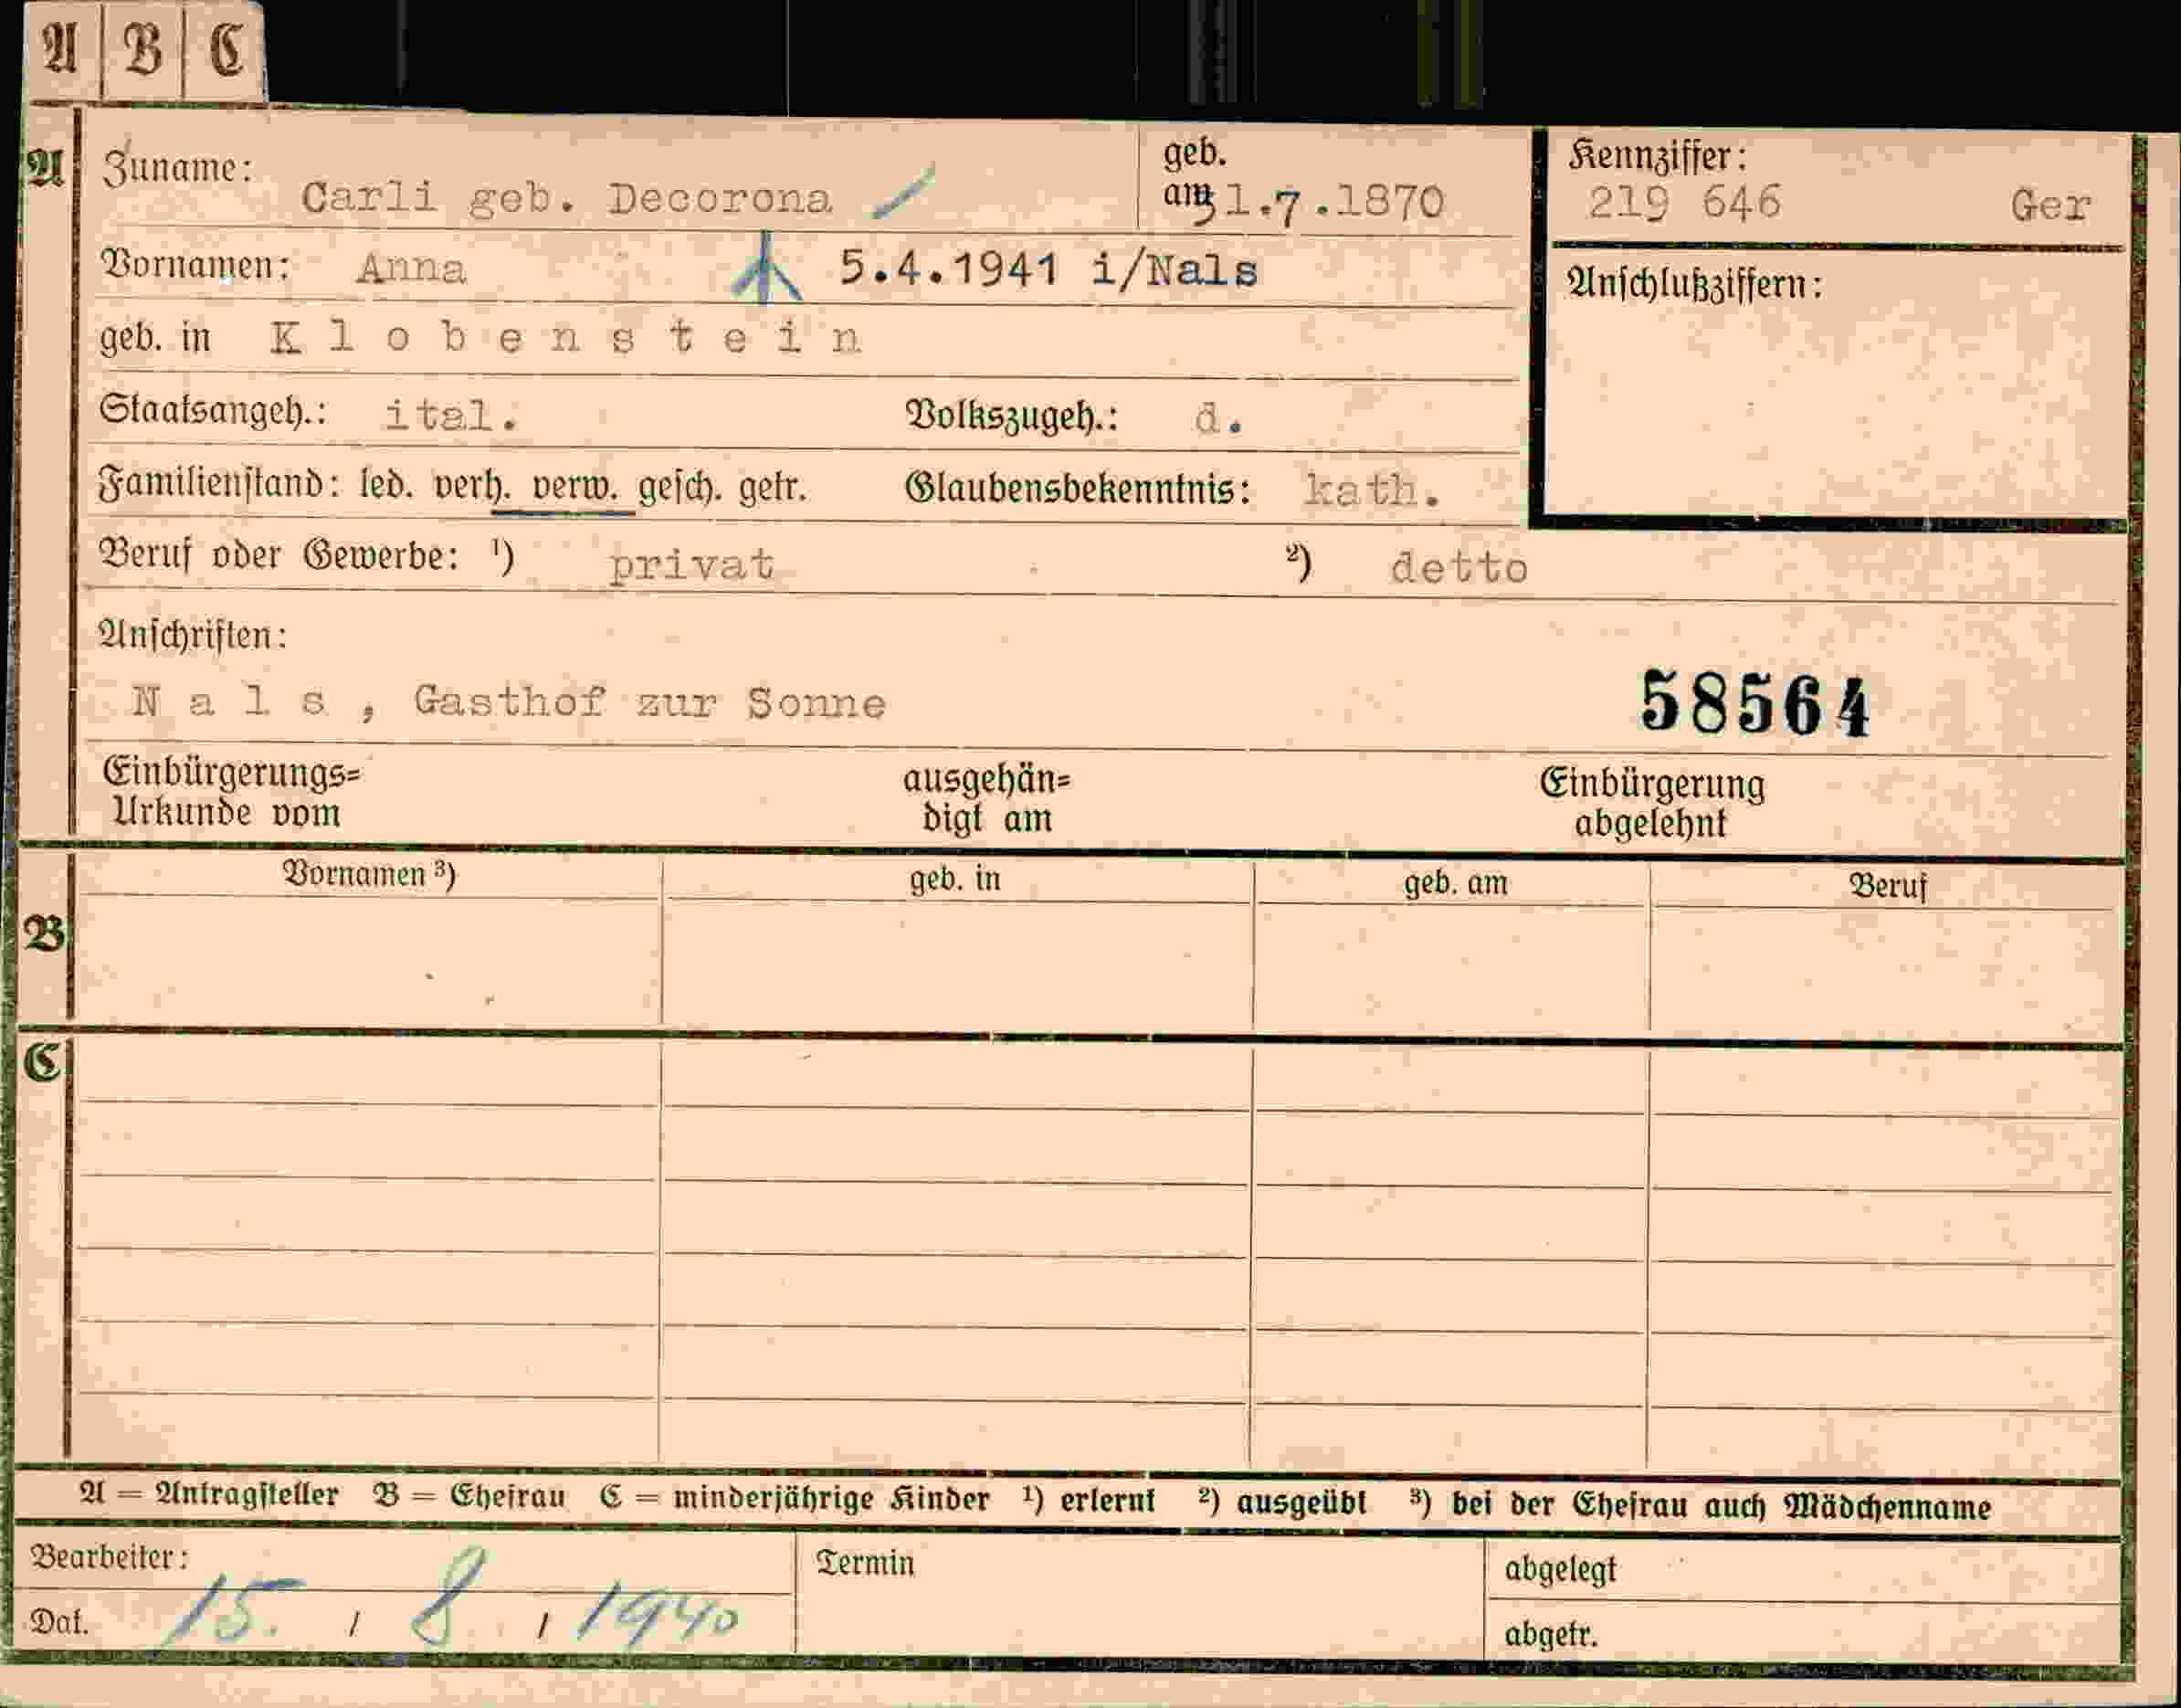 A B C
A
Zuname: Carli geb. Decorona
geb. am 31.7.1870
Kennziffer:
219 646 Ger
Vornamen: Anna 5.4.1941 i/Nals
Anschlußziffern:
geb. in Klobenstein
Staatsangeh.: ital. Volkszugeh.: d.
Familienstand: led. verh. verw. gesch. getr. Glaubensbekenntnis: kath.
Beruf oder Gewerbe: ¹) privat ²) detto
Anschriften:
Nals, Gasthof zur Sonne 58564
Einbürgerungs= ausgehän= Einbürgerung
Urkunde vom digt am abgelehnt
Vornamen ³) geb. in geb. am Beruf
B
C
A = Antragsteller B = Ehefrau C = minderjährige Kinder ¹) erlernt ²) ausgeübt ³) bei der Ehefrau auch Mädchenname
Bearbeiter: Termin abgelegt
Dat. 15. / 8 / 1940 abgetr.